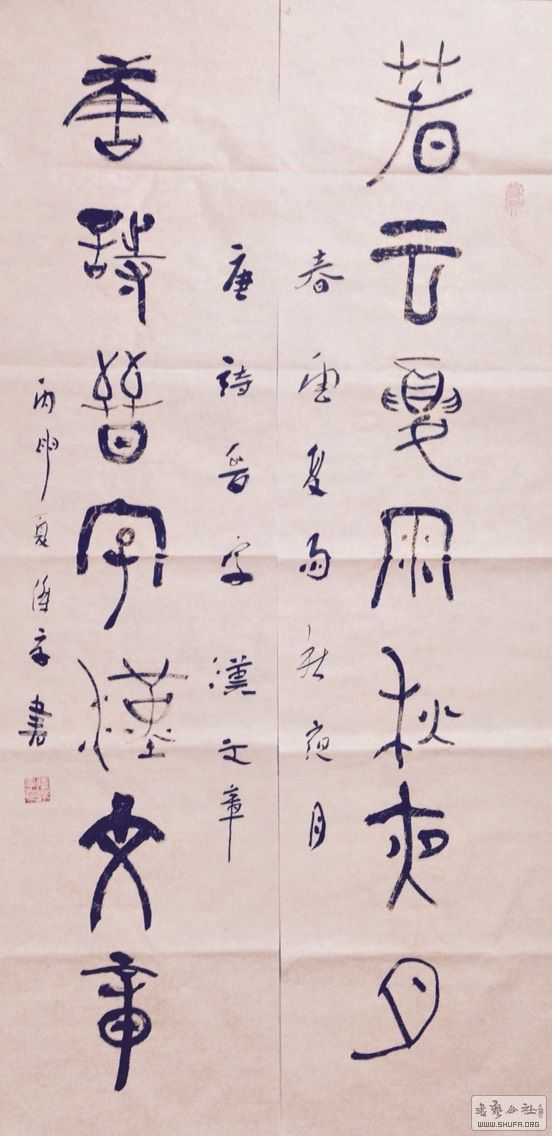 春云夏雨秋夜月
春雲夏雨秋夜月
唐詩晉字漢文章
唐詩晉字漢文章
丙申夏
書
書藝公社
WWW.SHUFA.ORG